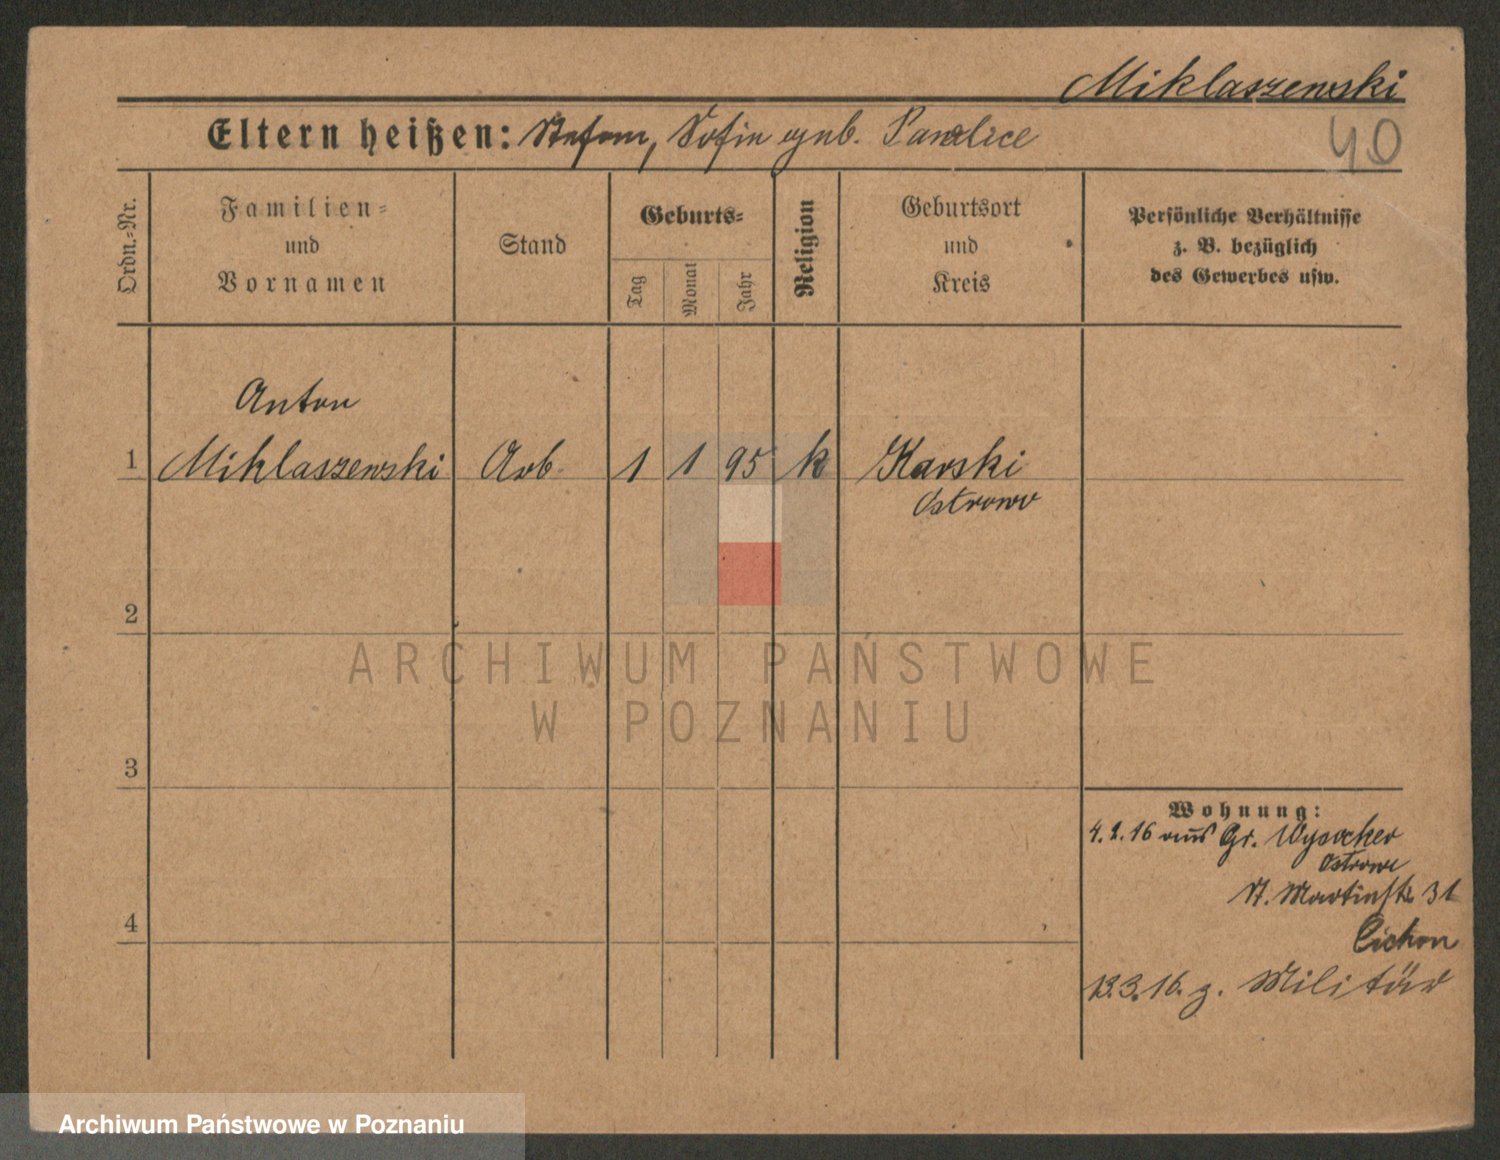 Miklaszewski
Eltern heißen: Stefan, Sofia geb.
40
Ordn.-Nr.
Familien-
und
Vornamen
Stand
Geburts-
Tag
Monat
Jahr
Religion
Geburtsort
und
Kreis
Persönliche Verhältnisse
z. B. bezüglich
des Gewerbes usw.
Anton
1 Miklaszewski Arb. 1 1 95 k Karski
Ostrowo
2
3
4
Wohnung:
4.2.16 aus Gr. Wysocker
Ostrowo
St. Martinstr. 31
Cichon
13.3.16. z. Militär
ARCHIWUM PAŃSTWOWE
W POZNANIU
Archiwum Państwowe w Poznaniu